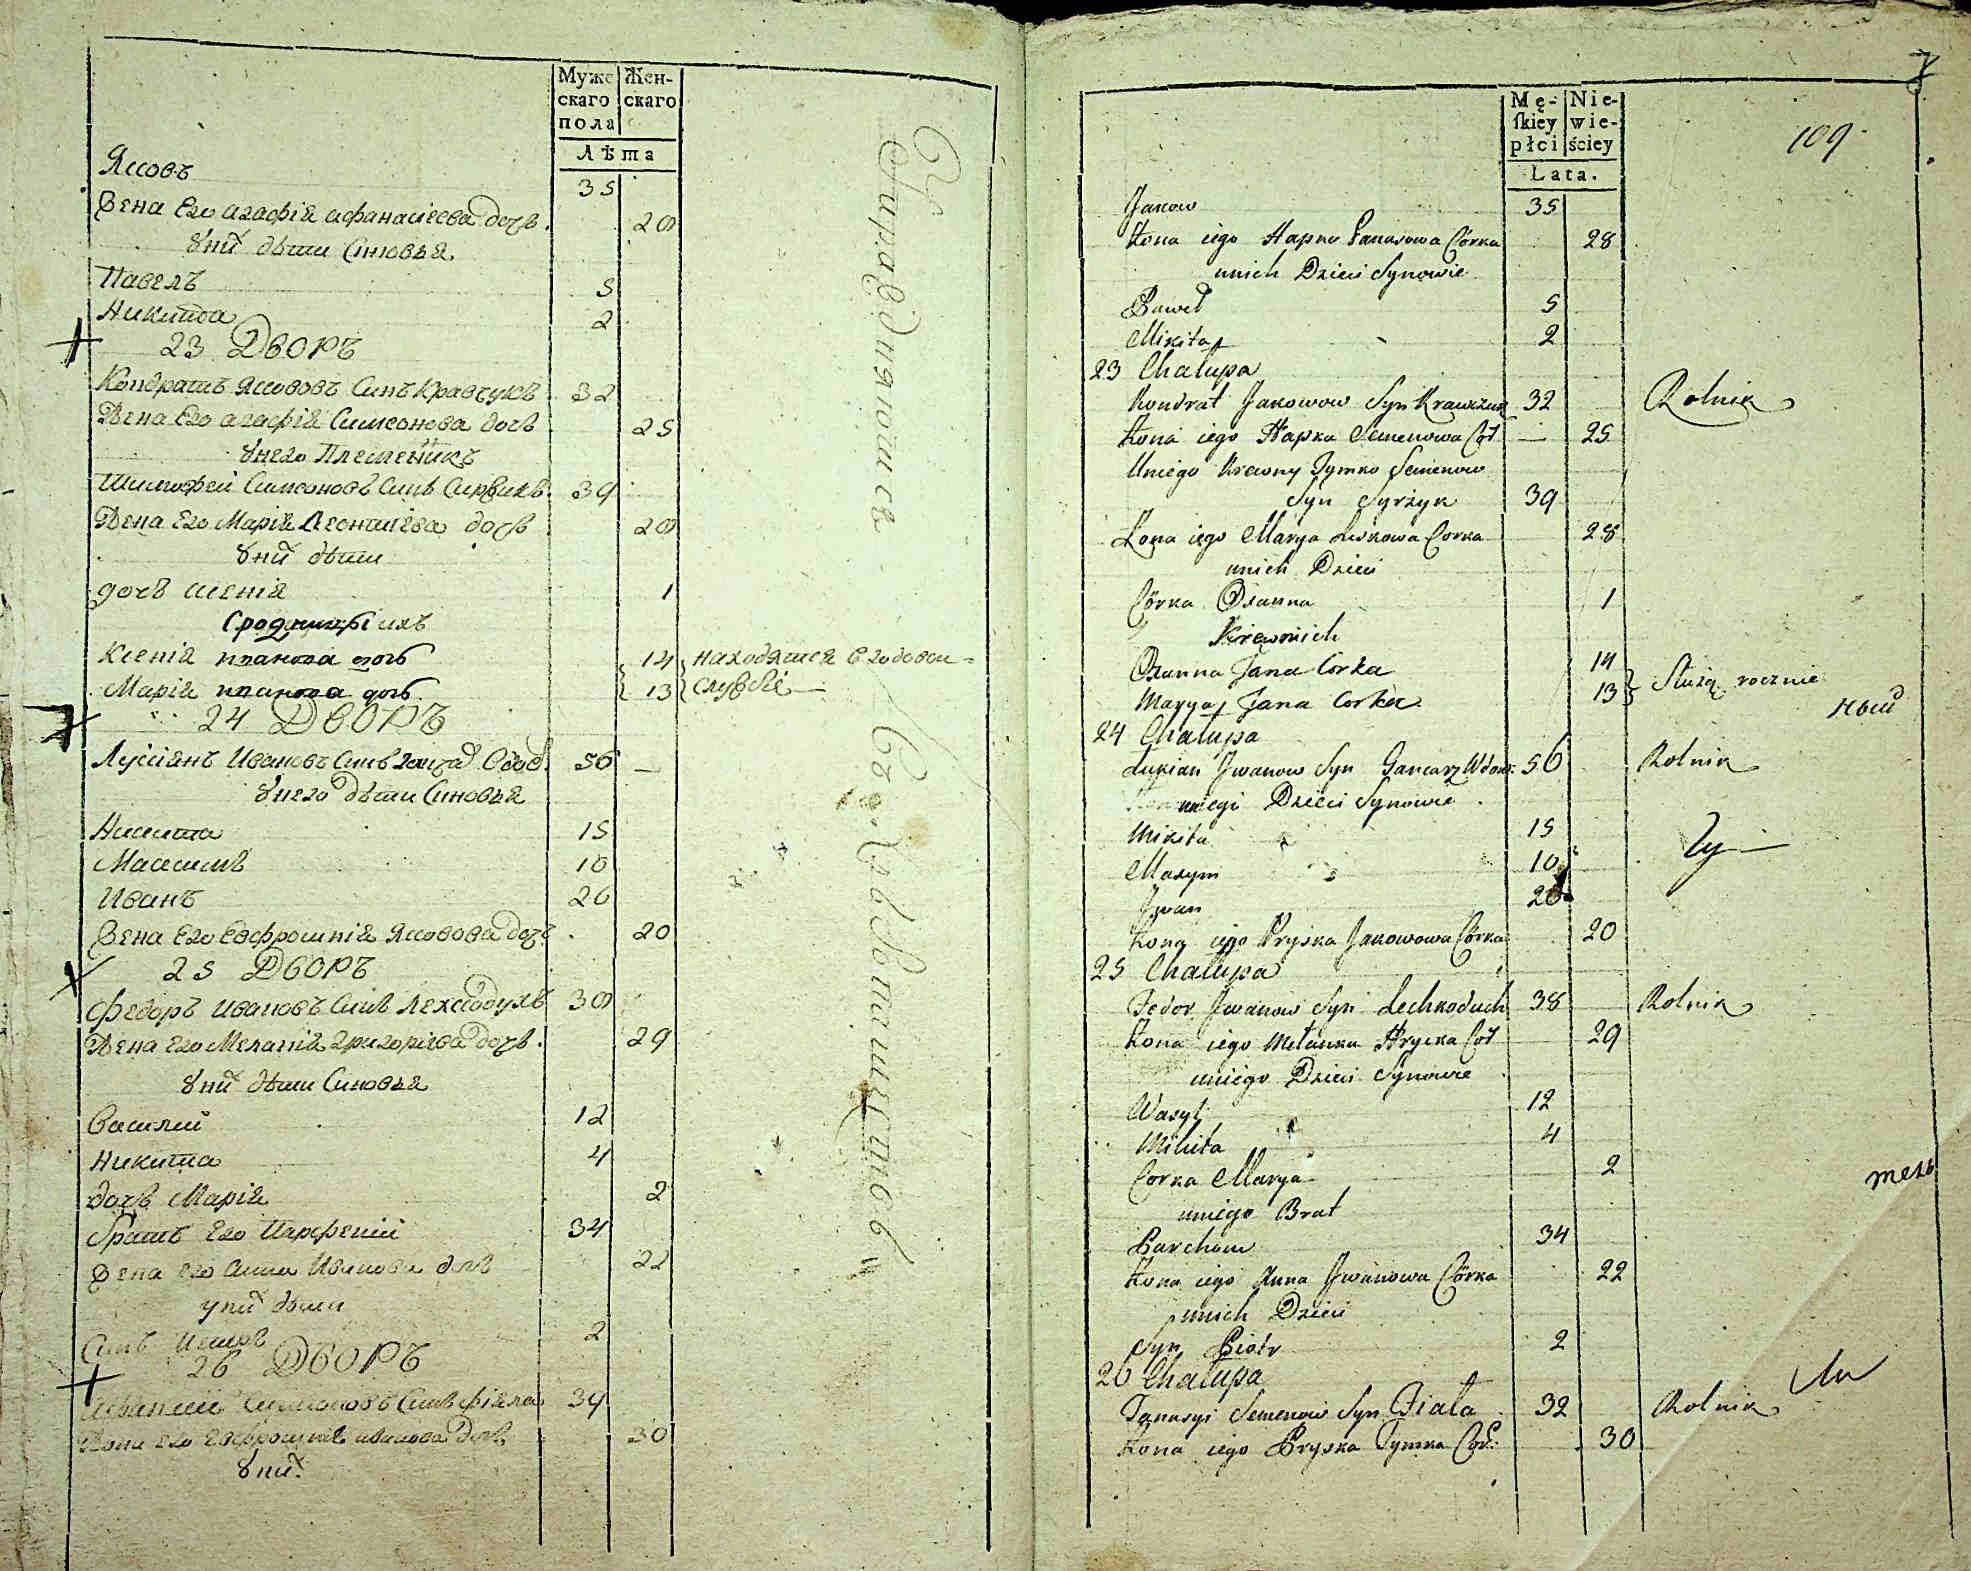 Муже
скаго
пола
Жен-
скаго
Лѣта
Яковъ 35
Жена Его Агафія Афанасіева дочь 28
У нихъ дѣти Синовья
Павелъ 5
Никита 2
23 Дворъ
Кондратъ Якововъ Синъ Кравчукъ 32
Жена Его Агафія Симеонова дочь 25
У него Племеникъ
Тимофей Симеоновъ Синъ 39
Жена Его Марія дочь 28
У нихъ дѣти
дочь Ксенія 1
Сродники ихъ
Ксенія иванова дочь 14 находятся в годовой
Марія иванова дочь 13 службѣ
24 Дворъ
Лукіянъ Ивановъ Синъ 56
У него дѣти Синовья
Никита 15
Максимъ 10
Иванъ 26
Жена Его Евфросинія Яковова дочь 20
25 Дворъ
Федоръ Ивановъ Синъ Лехкодухъ 38
Жена Его Меланія Григоріева дочь 29
У нихъ дѣти Синовья
Василий 12
Никита 4
дочь Марія 2
Братъ Его Парфений 34
Жена его Анна Иванова дочь 22
у нихъ дѣти
Синъ 2
26 Дворъ
Афанасій Симеоновъ Синъ Фіяла 34
Жена Его Евфросинія дочь 30
У нихъ
7
Mę-
skiey
płci
Nie-
wie-
ściey
Lata.
109
Jakow 35
Żona iego Hapka Panasowa Córka 28
unich Dzieci Synowie
Paweł 5
Mikita 2
23 Chałupa
Kondrat Jakowow Syn Krawczuk 32 Rolnik
Żona iego Hapka Semenowa Cór. 25
Uniego Krewny Tymko Semenow
Syn Syrżyk 39
Żona iego Marya Leskowa Corka 28
unich Dzieci
Córka Oxanna 1
Krewnich
Oxanna Jana Corka 14 Służą rocznie
Marya Jana Corka 13
ный
24 Chałupa
Łukian Jwanow Syn Gancarz Wdow. 56 Rolnik
uniego Dzieci Synowie
Mikita 15
Maxym 10
Jwan 26
Żona iego Pryska Jakowowa Córka 20
25 Chałupa
Fedor Jwanow Syn Lechkoduch 38 Rolnik
Żona iego Melanka Hrycka Cór 29
uniego Dzieci Synowie
Wasyl 12
Mikita 4
Corka Marya 2
тель
uniego Brat
Parchom 34
Żona iego Anna Jwanowa Córka 22
unich Dzieci
Syn Piotr 2
26 Chałupa
Panasyi Semenow Syn Fiała 32 Rolnik
Żona iego Pryska Tymka Cór: 30